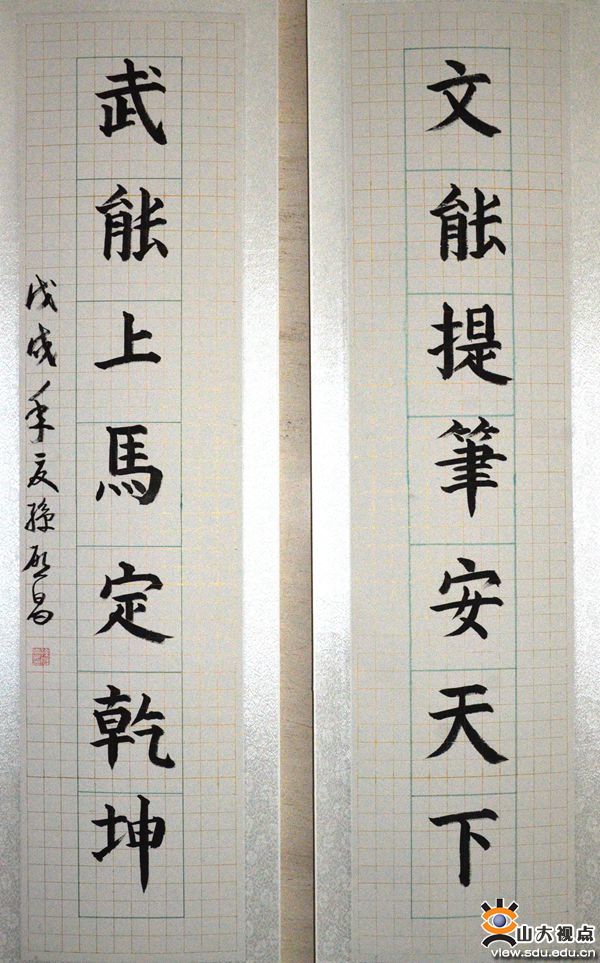 文能提筆安天下
武能上馬定乾坤
戊戌年夏孫啟昌
山大视点
view.sdu.edu.cn